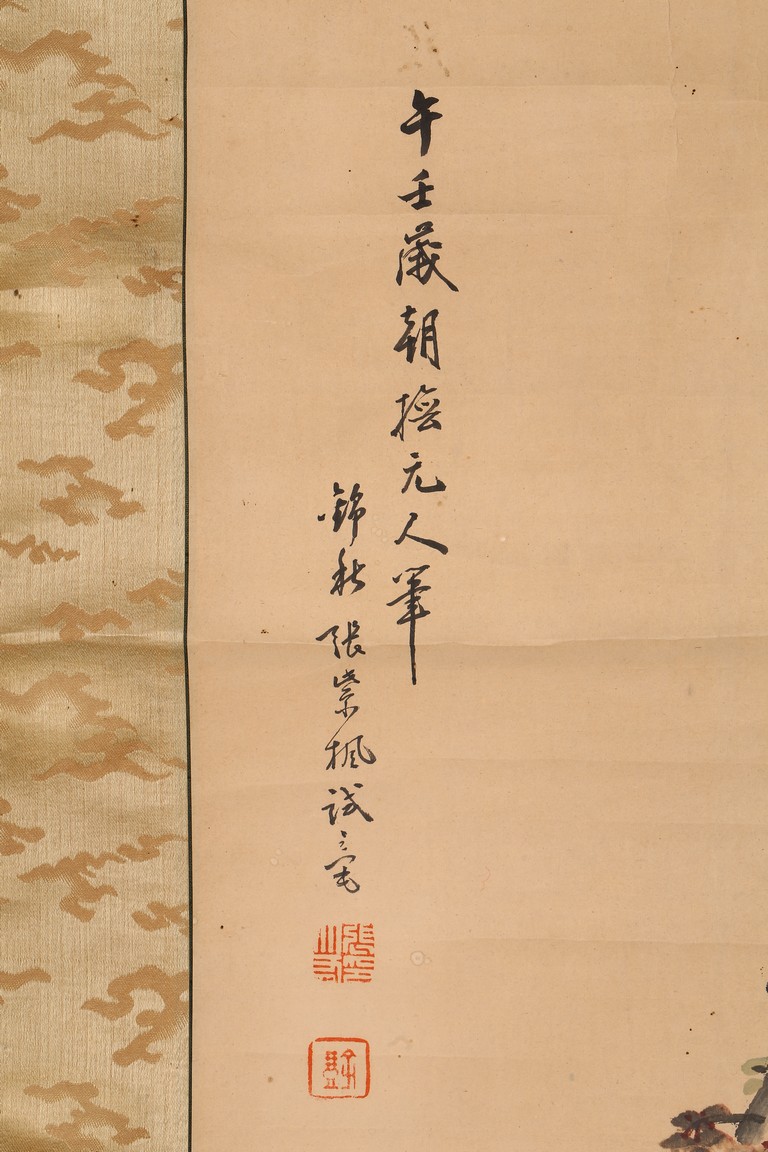 午壬歲朝撫元人筆
錦秋張紫楓誠之寫